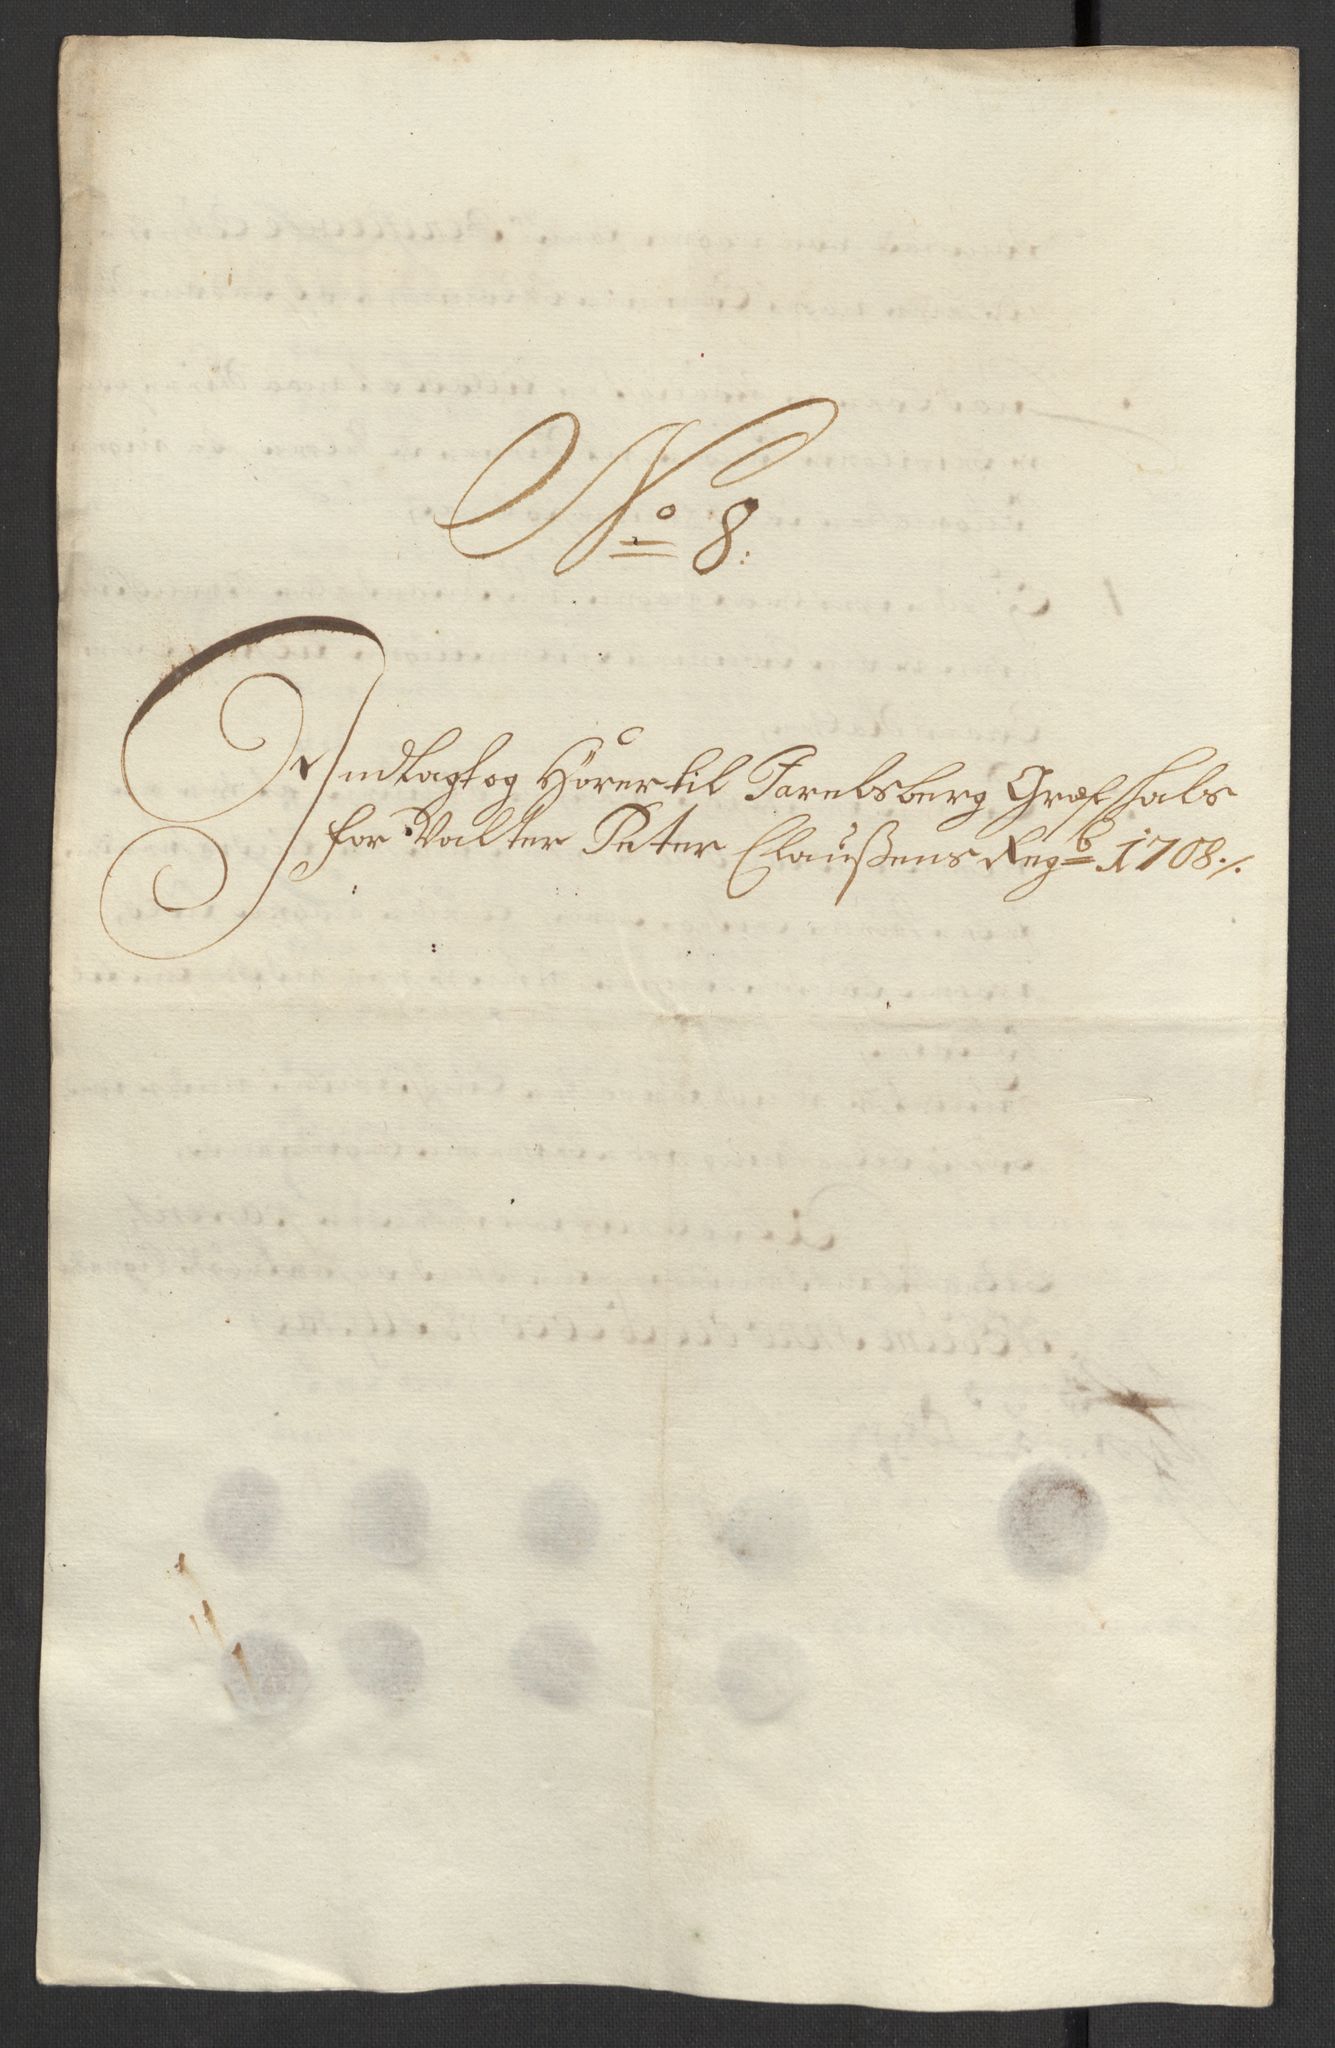 No 8:
Indlagt og Hörer til Jarelsberg Grefskabs
for Valter Peter Claußens Regb 1708./.